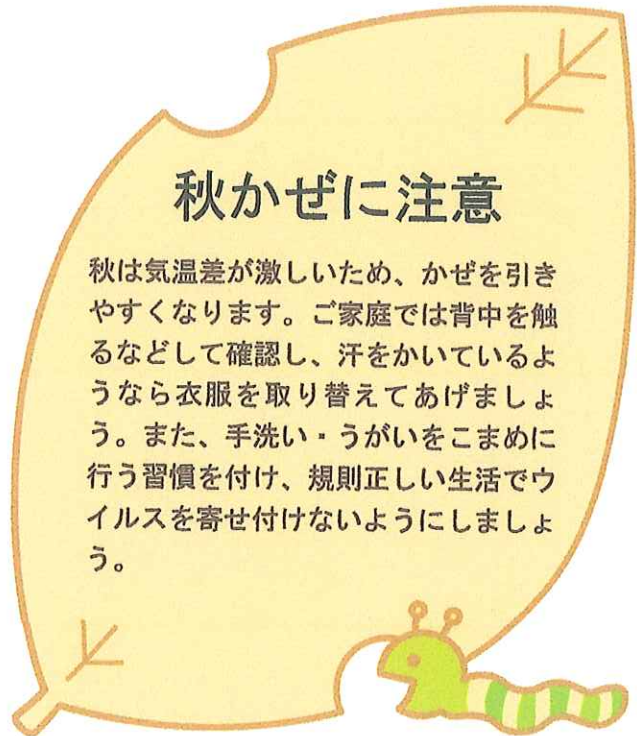 秋かぜに注意
秋は気温差が激しいため、かぜを引き
やすくなります。ご家庭では背中を触
るなどして確認し、汗をかいているよ
うなら衣服を取り替えてあげましょ
う。また、手洗い・うがいをこまめに
行う習慣を付け、規則正しい生活でウ
イルスを寄せ付けないようにしましょ
う。